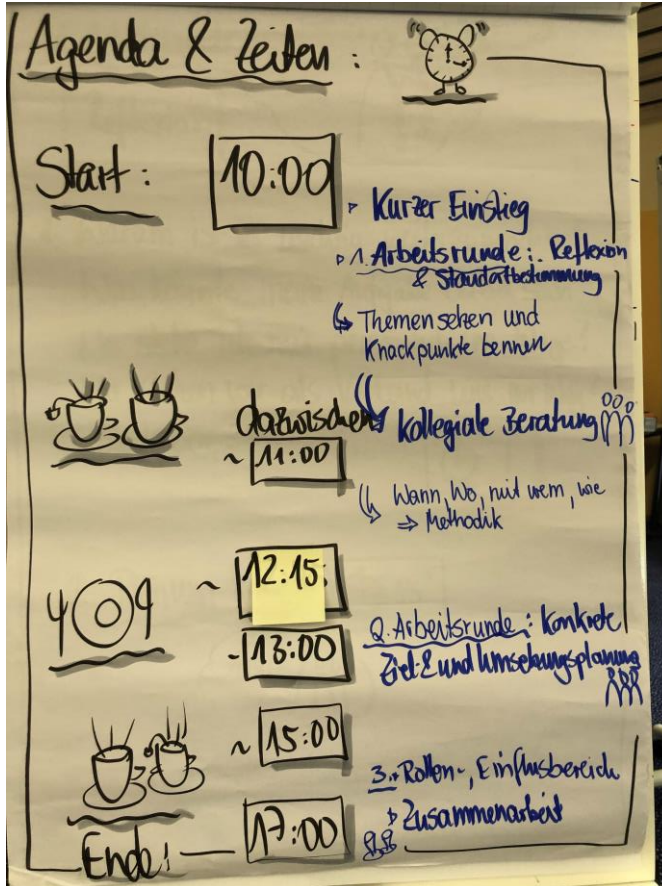 Agenda & Zeiten :
Start : 10:00
▹ Kurzer Einstieg
▹ 1. Arbeitsrunde : Reflexion
& Standortbestimmung
↳ Themen sehen und
Knackpunkte bennen
dazwischen
~ 11:00
↳ Kollegiale Beratung
↳ Wann, Wo, mit wem, wie
⇒ Methodik
~ 12:15
- 13:00
2. Arbeitsrunde : Konkrete
Ziel- & und Umsetzungsplanung
~ 15:00
3. Rollen-, Einflusbereich
▹ Zusammenarbeit
Ende : — 17:00